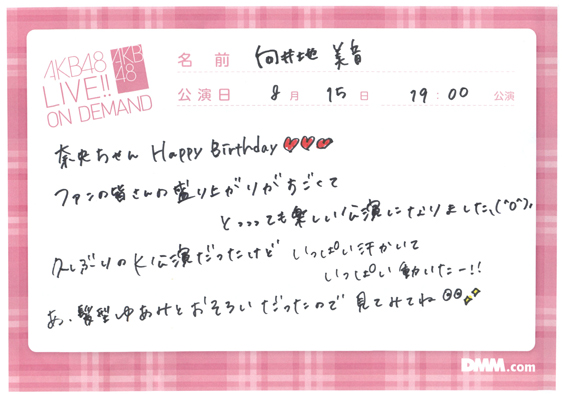 AKB48
LIVE!!
ON DEMAND
AKB
48
名前 向井地 美音
公演日 8月 15日 19:00 公演
奈央ちゃん Happy Birthday
ファンの皆さんの盛り上がりがすごくて
とっっっても楽しい公演になりました(^o^)
久しぶりのK公演だったけど いっぱい汗かいて
いっぱい動いたー!!
あ、髪型ゆあみとおそろいだったので 見てみてね
DMM.com